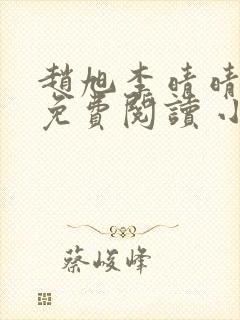 趙旭李晴晴
免費閱讀小
蔡峻峰